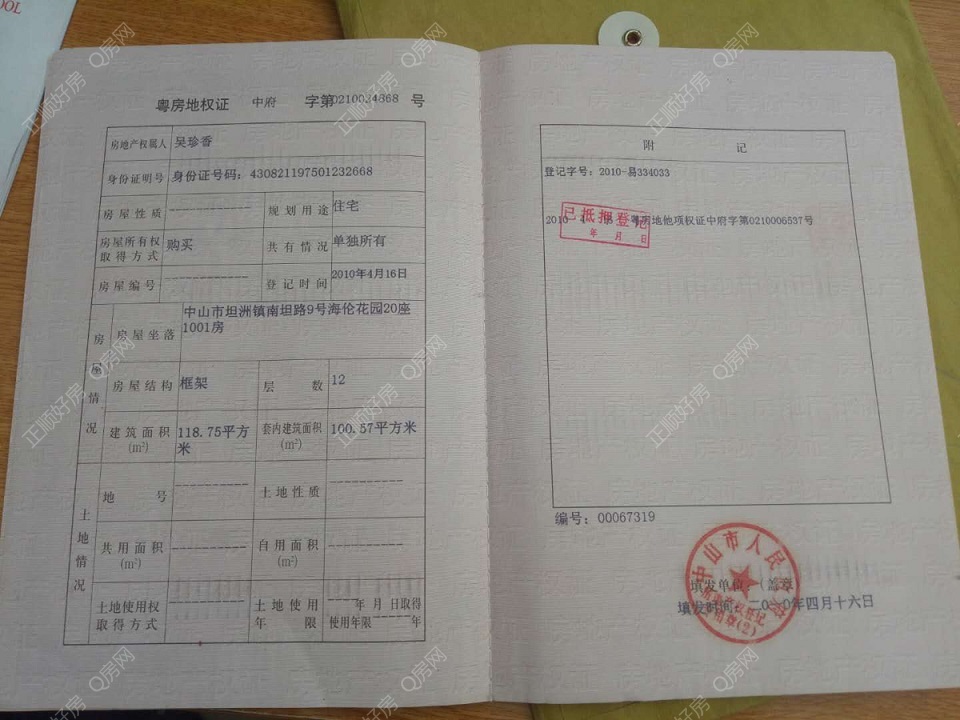 OOL
粤房地权证 中府 字第0210034868 号
房地产权属人 吴珍香
身份证明号 身份证号码：430821197501232668
房屋性质 ---------- 规划用途 住宅
房屋所有权取得方式 购买 共有情况 单独所有
房屋编号 ---------- 登记时间 2010年4月16日
房屋情况
房屋坐落 中山市坦洲镇南坦路9号海伦花园20座
1001房
房屋结构 框架 层数 12
建筑面积(m²) 118.75平方米 套内建筑面积(m²) 100.57平方米
土地情况
地号 ---------- 土地性质 ----------
共用面积(m²) ---------- 自用面积(m²) ----------
土地使用权取得方式 ---------- 土地使用年限 ----年 月 日取得
使用年限------年
附记
登记字号：2010-易334033
粤房地他项权证中府字第0210006537号
已抵押登记
年 月 日
编号：00067319
中山市人民
填发单位：（盖章
填发时间：二0一0年四月十六日
正顺好房 Q房网